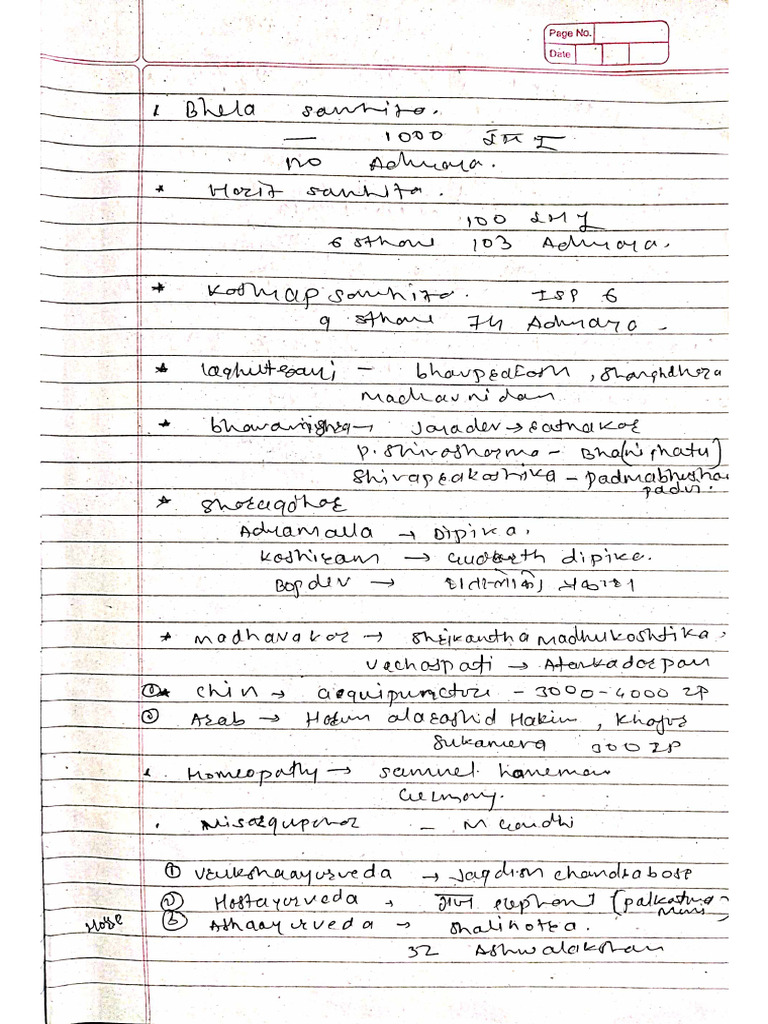 Page No.
Date
Bhela sanhita.
— 1000
no Adhyaya.
* Harit sanhita.
100
6 sthane 103 Adhyaya.
* Kashyap sanhita. ISP 6
9 sthane 74 Adhyaya -
* laghutrayi - bhavprakash, Sharghdhara
Madhavnidan
* bhavamishra - Jaradev → ratnakar
P. Shivasharma - Bha(nighatu)
Shivaprakoshika - padmabhusha
padvi.
* Sharagdhar
Adhamalla → Dipika.
Koshiram → Gudarth dipika.
Bopdev →
* Madhavakar → Shrikantha Madhukoshtika,
Vachaspati → Atankadarpan
① * Chin → acquipuncture - 3000-4000 ISP
② Arab → Harun alarashid Hakim, Khajur
300 ISP
Homeopathy → samuel haneman
Germony.
. Nisargupchar - M Gandhi
① Vrukshaayurveda → Jagdish chandrabose
② Hastayurveda → गज elephant (palkatya
muni)
Hose ③ Ashaayurveda → shalihotra.
32 Ashwalakshan